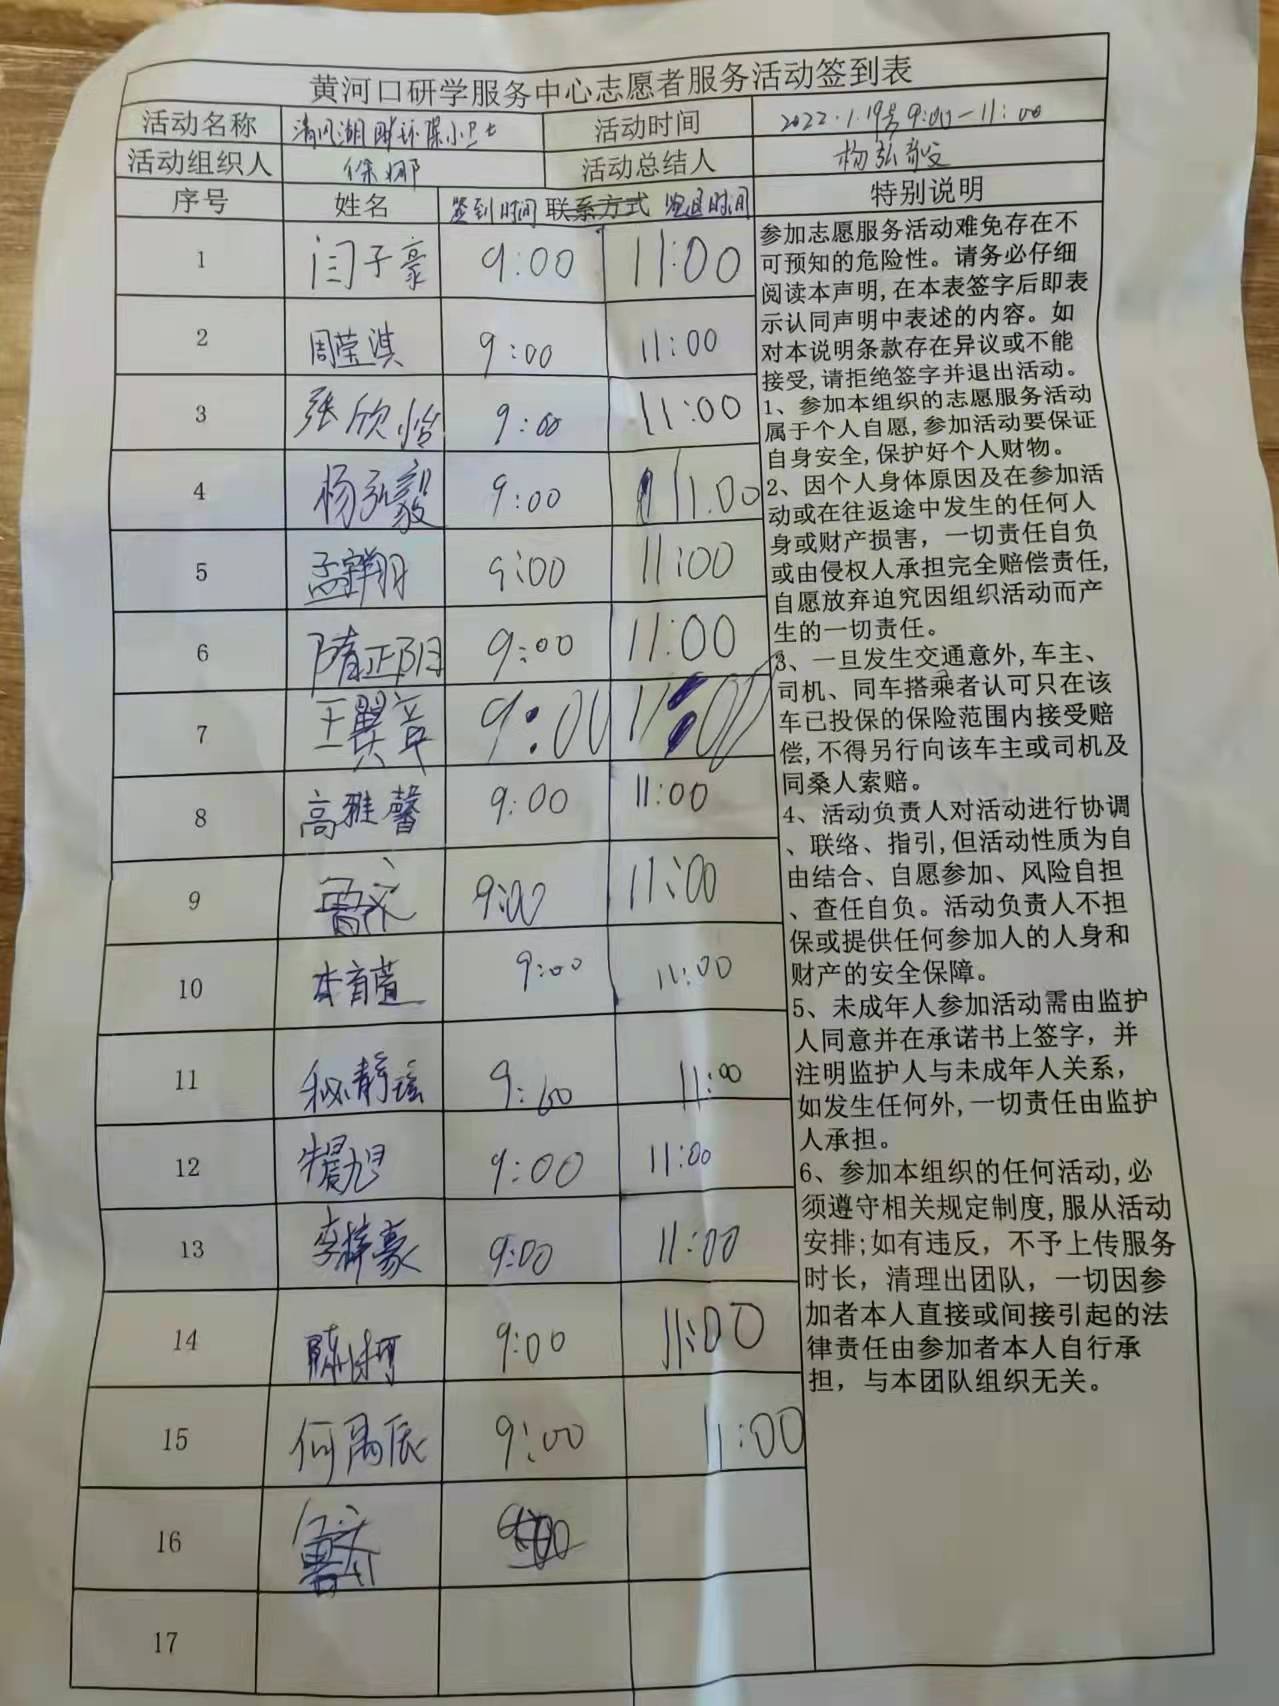 黄河口研学服务中心志愿者服务活动签到表
活动名称 清风湖 环保小卫士 活动时间 2022.1.19号9:00-11:00
活动组织人 徐娜 活动总结人 杨弘毅
序号 姓名 签到时间 联系方式 签退时间 特别说明
1 闫子豪 9:00 11:00
2 周莹淇 9:00 11:00
3 张欣怡 9:00 11:00
4 杨弘毅 9:00 11:00
5 孟祥羽 9:00 11:00
6 隋正阳 9:00 11:00
7 王翼章 9:00 11:00
8 高雅馨 9:00 11:00
9 9:00 11:00
10 9:00 11:00
11 秘静瑶 9:00 11:00
12 9:00 11:00
13 李梓豪 9:00 11:00
14 9:00 11:00
15 何禹辰 9:00 11:00
16
17
参加志愿服务活动难免存在不
可预知的危险性。请务必仔细
阅读本声明,在本表签字后即表
示认同声明中表述的内容。如
对本说明条款存在异议或不能
接受,请拒绝签字并退出活动。
1、参加本组织的志愿服务活动
属于个人自愿,参加活动要保证
自身安全,保护好个人财物。
2、因个人身体原因及在参加活
动或在往返途中发生的任何人
身或财产损害，一切责任自负
或由侵权人承担完全赔偿责任,
自愿放弃追究因组织活动而产
生的一切责任。
3、一旦发生交通意外,车主、
司机、同车搭乘者认可只在该
车已投保的保险范围内接受赔
偿,不得另行向该车主或司机及
同桑人索赔。
4、活动负责人对活动进行协调
、联络、指引,但活动性质为自
由结合、自愿参加、风险自担
、查任自负。活动负责人不担
保或提供任何参加人的人身和
财产的安全保障。
5、未成年人参加活动需由监护
人同意并在承诺书上签字，并
注明监护人与未成年人关系，
如发生任何外,一切责任由监护
人承担。
6、参加本组织的任何活动,必
须遵守相关规定制度,服从活动
安排;如有违反，不予上传服务
时长，清理出团队，一切因参
加者本人直接或间接引起的法
律责任由参加者本人自行承
担，与本团队组织无关。